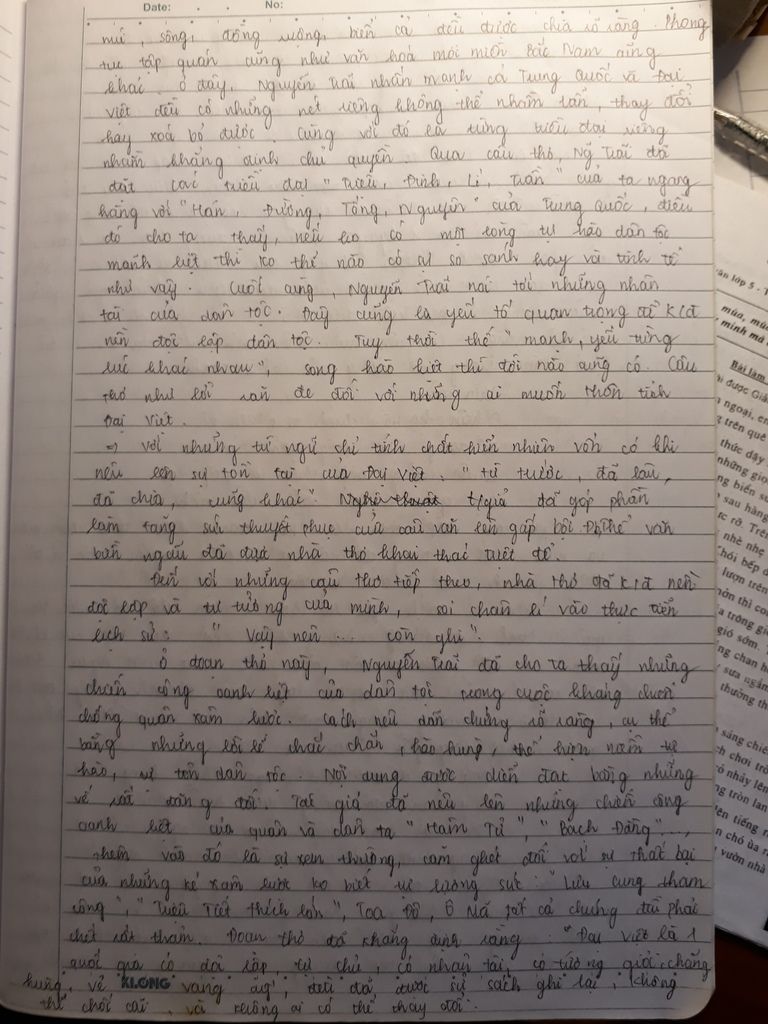 Date: No:
núi, sông, đồng ruộng, biển cả đều được chia rõ ràng. Phong
tục tập quán cũng như văn hoá mỗi miền Bắc Nam cũng
khác. Ở đây, Nguyễn Trãi nhấn mạnh cả Trung Quốc và Đại
Việt đều có những nét riêng không thể nhầm lẫn, thay đổi
hay xoá bỏ được. Cùng với đó là từng triều đại riêng
nhằm khẳng định chủ quyền. Qua câu thơ, Ng Trãi đã
đặt các triều đại "Triệu, Đinh, Lí, Trần" của ta ngang
hàng với "Hán, Đường, Tống, Nguyên" của Trung Quốc, điều
đó cho ta thấy, nếu ko có một lòng tự hào dân tộc
mãnh liệt thì ko thể nào có sự so sánh hay và tinh tế
như vậy. Cuối cùng, Nguyễn Trãi nói tới những nhân
tài của dân tộc. Đây cũng là yếu tố quan trọng để KĐ
nền độc lập dân tộc. Tuy thời thế "mạnh, yếu từng
lúc khác nhau", song hào kiệt thì đời nào cũng có. Câu
thơ như lời răn đe đối với những ai muốn thôn tính
Đại Việt.
=> Với những từ ngữ chỉ tính chất hiển nhiên vốn có khi
nêu lên sự tồn tại của Đại Việt: "từ trước, đã lâu,
đã chia, cũng khác" t/giả đã góp phần
làm tăng sức thuyết phục của câu văn lên gấp bội. thể văn
biền ngẫu đã được nhà thơ khai thác triệt để.
Đến với những câu thơ tiếp theo, nhà thơ đã KĐ nền
độc lập và tư tưởng của mình, soi chân lí vào thực tiễn
lịch sử: "Vậy nên ... còn ghi".
Ở đoạn thơ này, Nguyễn Trãi đã cho ta thấy những
chiến công oanh liệt của dân tộc trong cuộc kháng chiến
chống quân xâm lược. Cách nêu dẫn chứng rõ ràng, cụ thể
bằng những lời lẽ chắc chắn, hào hùng, thể hiện niềm tự
hào, tự tôn dân tộc. Nội dung được diễn đạt bằng những
vế đối. Tác giả đã nêu lên những chiến công
oanh liệt của quân và dân ta "Hàm Tử", "Bạch Đằng"...,
thêm vào đó là sự xem thường, căm ghét đối với sự thất bại
của những kẻ xâm lược ko biết tự lượng sức: "Lưu Cung tham
công", "Triệu Tiết thích lớn", Toa Đô, Ô Mã tất cả chúng đều phải
chết thảm. Đoạn thơ đã khẳng định rằng: "Đại Việt là 1
quốc gia có độc lập, tự chủ, có nhân tài, có tướng giỏi chẳng
KLONG
hùng, vẻ vang ấy, điều đó, được sử sách ghi lại, không
thể chối cãi, và không ai có thể thay đổi.
văn lớp 5 - T
mùa, mù
minh mà
Bài làm
ại được Giá
ngoại, en
trên quê
thức dậy
những gió
ng biển sư
sau hàng
ực rỡ. Trên
nhè nhẹ
hói bếp đ
lượn trên
ởn thì co
a trông gi
gió sớm.
ng chan h
sưa ngắm
thường th
sáng chiế
ch chơi trò
ó nhảy lên
g tròn lan
ên tiếng r
n chó ùa r
vườn nhà